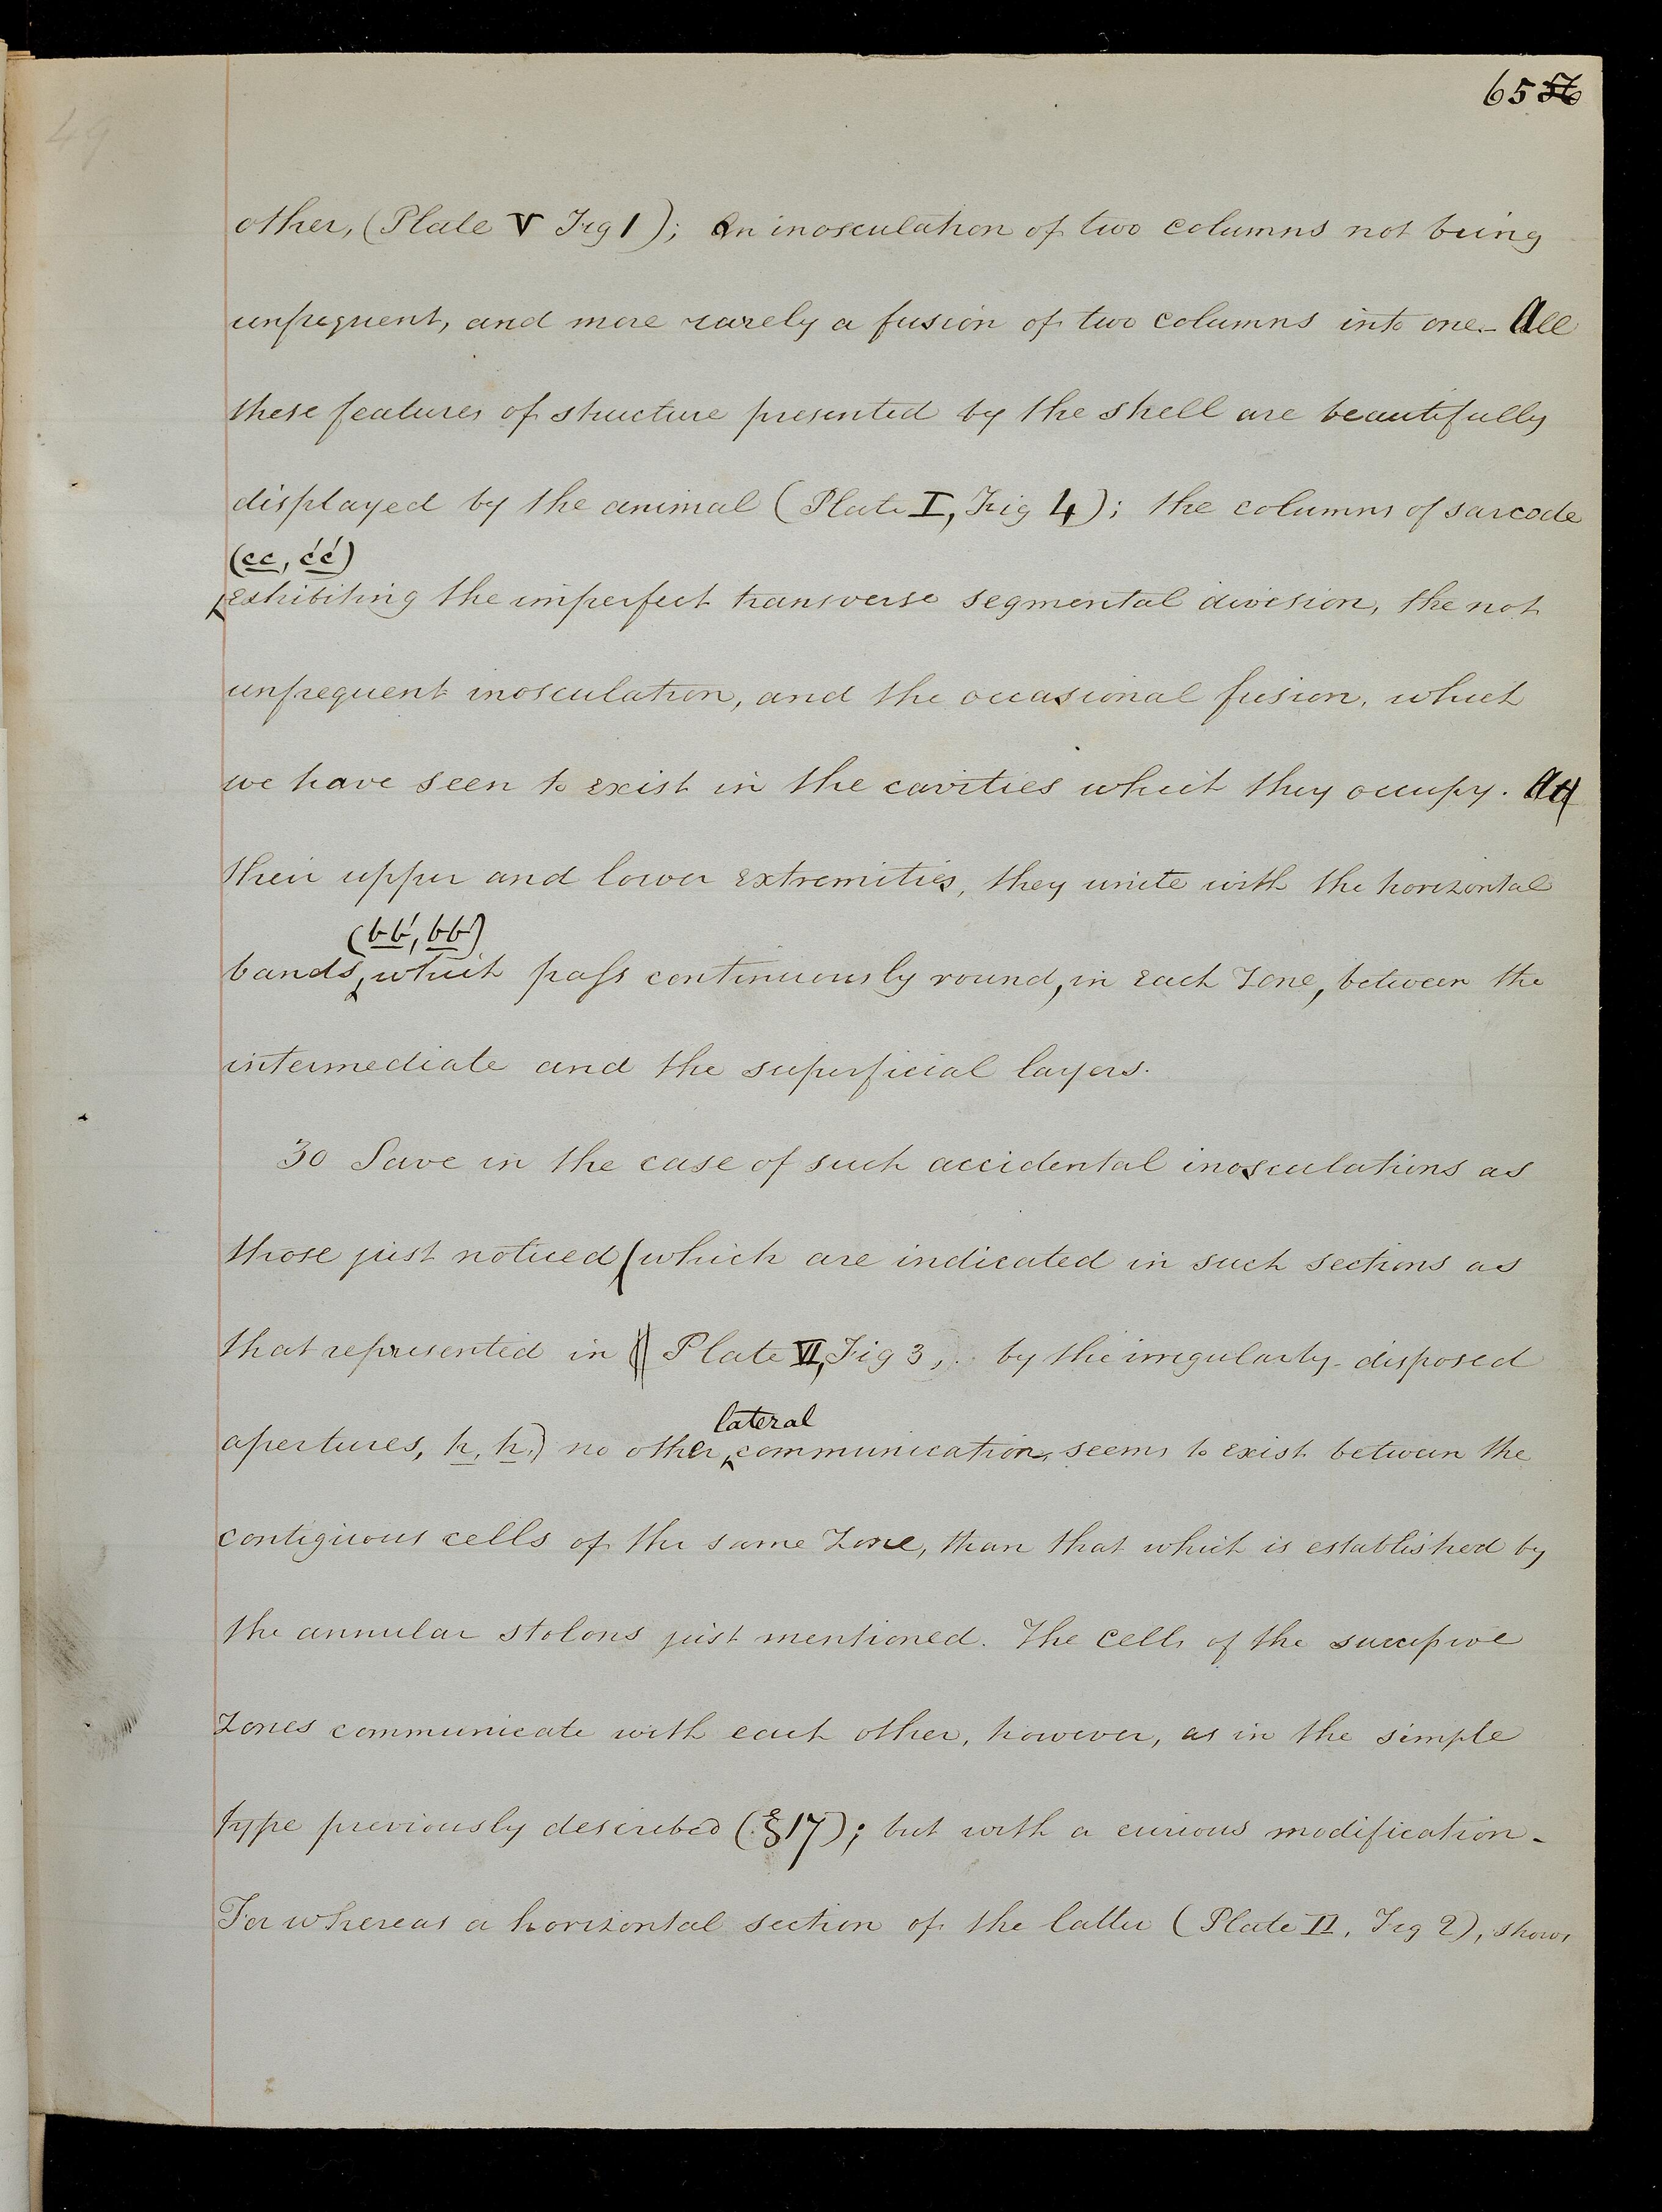 65 56
49
other, (Plate V Fig 1); An inosculation of two columns not being
unfrequent, and more rarely a fusion of two columns into one. All
these features of structure presented by the shell are beautifully
displayed by the animal (Plate I, Fig 4); the columns of sarcode
(cc, c'c')
exhibiting the imperfect transverse segmental division, the not
unfrequent inosculation, and the occasional fusion, which
we have seen to exist in the cavities which they occupy. At
their upper and lower extremities, they unite with the horizontal
(bb', bb')
bands, which pass continuously round, in each zone, between the
intermediate and the superficial layers.
30 Save in the case of such accidental inosculations as
those just noticed (which are indicated in such sections as
that represented in Plate VI, Fig 3, by the irregularly-disposed
lateral
apertures, h, h,) no other communication, seems to exist between the
contiguous cells of the same zone, than that which is established by
the annular stolons just mentioned. The cells of the successive
zones communicate with each other, however, as in the simple
type previously described (§17); but with a curious modification-
For whereas a horizontal section of the latter (Plate II, Fig 2), shows